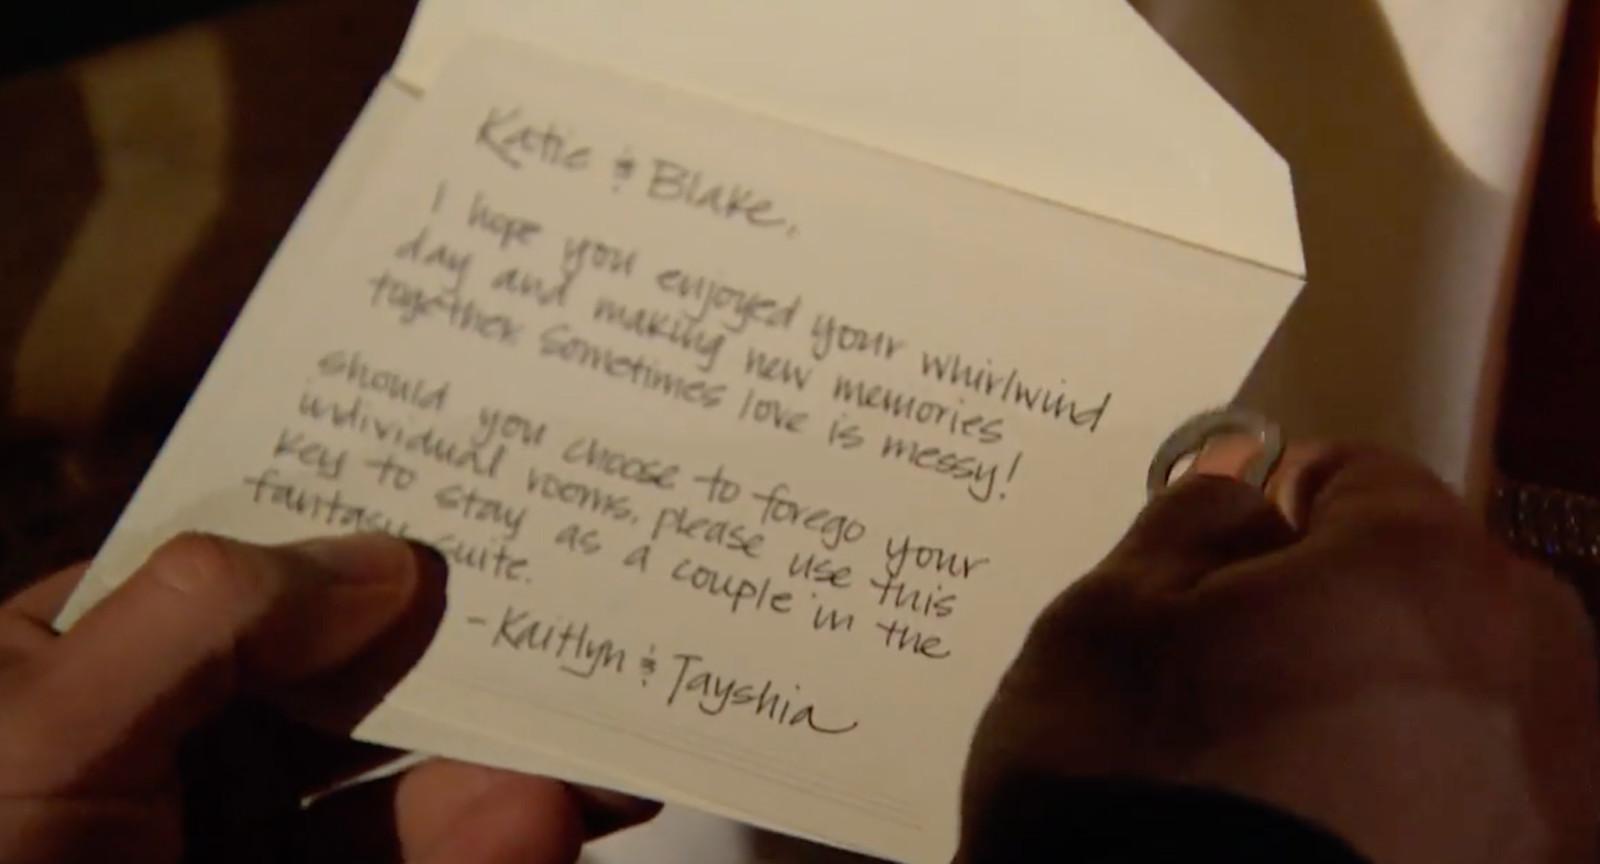 Katie & Blake,
I hope you enjoyed your whirlwind
day and making new memories
together. Sometimes love is messy!
Should you choose to forego your
individual rooms, please use this
key to stay as a couple in the
fantasy suite.
- Kaitlyn & Tayshia